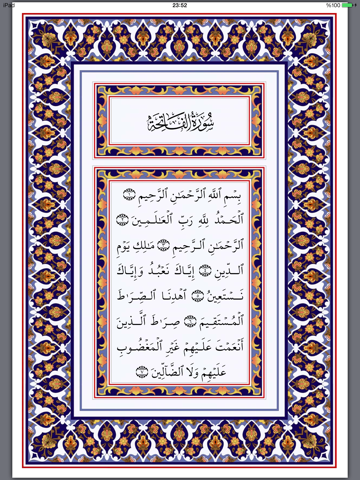 iPad 23:52 %100
سُورَةُ ٱلْفَاتِحَةِ
بِسْمِ ٱللَّهِ ٱلرَّحْمَٰنِ ٱلرَّحِيمِ ۝١
ٱلْحَمْدُ لِلَّهِ رَبِّ ٱلْعَٰلَمِينَ ۝٢
ٱلرَّحْمَٰنِ ٱلرَّحِيمِ ۝٣ مَٰلِكِ يَوْمِ
ٱلدِّينِ ۝٤ إِيَّاكَ نَعْبُدُ وَإِيَّاكَ
نَسْتَعِينُ ۝٥ ٱهْدِنَا ٱلصِّرَٰطَ
ٱلْمُسْتَقِيمَ ۝٦ صِرَٰطَ ٱلَّذِينَ
أَنْعَمْتَ عَلَيْهِمْ غَيْرِ ٱلْمَغْضُوبِ
عَلَيْهِمْ وَلَا ٱلضَّآلِّينَ ۝٧